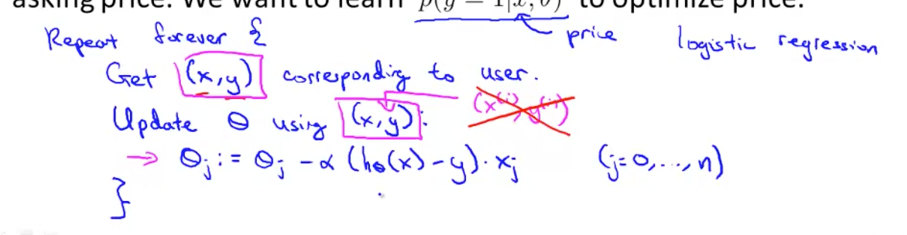 asking price. We want to learn p(y = 1|x; θ) to optimize price.
Repeat forever { price logistic regression
Get (x, y) corresponding to user.
Update θ using (x, y): (x^(i), y^(i))
→ θ_j := θ_j - α (h_θ(x) - y) · x_j (j=0, ..., n)
}